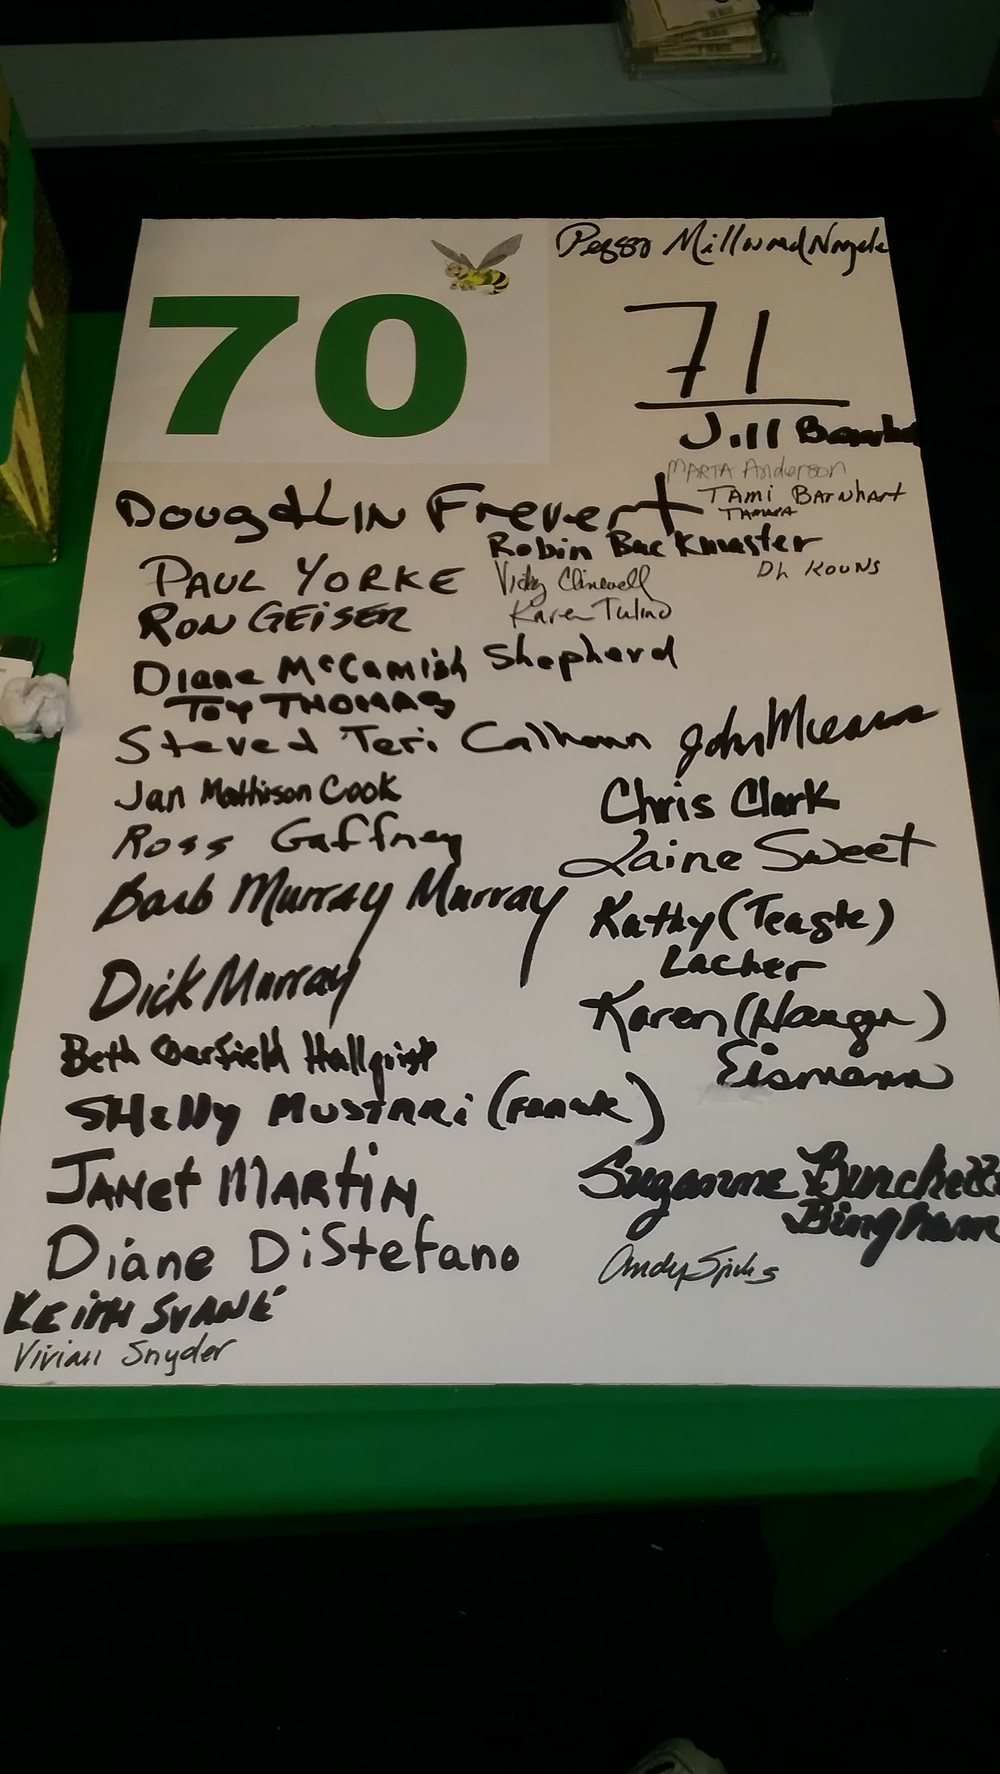 Peggy Millward Nagele
70
71
Jill
Marta Anderson
Tami Barnhart
Tamara
Doug & Lin Frevert
Robin Backmaster
Paul Yorke
Vicky
Dh Kouns
Ron Geiser
Karen Tulino
Diane McCamish Shepherd
Toy Thomas
Steve & Teri Calhoun
John
Jan Mathison Cook
Chris Clark
Ross Gaffney
Laine Sweet
Barb Murray Murray
Kathy (Teagle)
Lacher
Dick Murray
Karen (Haugn)
Beth Garfield Hallquist
Eismann
SHelly MUSTARi
JANet MARtiN
Suzanne Burchett
Bingham
Diane DiStefano
Andy
KEITH SVANÉ
Vivian Snyder